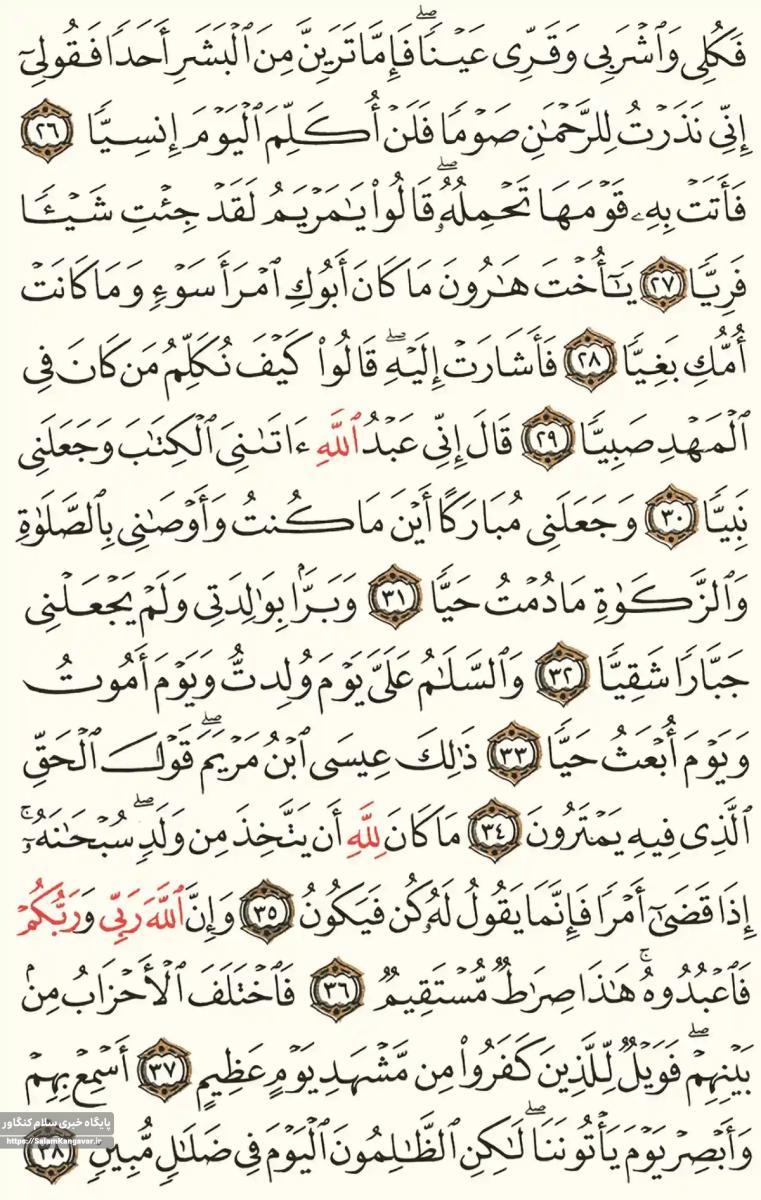 فَكُلِى وَٱشْرَبِى وَقَرِّى عَيْنًۭا ۖ فَإِمَّا تَرَيِنَّ مِنَ ٱلْبَشَرِ أَحَدًۭا فَقُولِىٓ
إِنِّى نَذَرْتُ لِلرَّحْمَـٰنِ صَوْمًۭا فَلَنْ أُكَلِّمَ ٱلْيَوْمَ إِنسِيًّۭا ٢٦
فَأَتَتْ بِهِۦ قَوْمَهَا تَحْمِلُهُۥ ۖ قَالُوا۟ يَـٰمَرْيَمُ لَقَدْ جِئْتِ شَيْـًۭٔا
فَرِيًّۭا ٢٧ يَـٰٓأُخْتَ هَـٰرُونَ مَا كَانَ أَبُوكِ ٱمْرَأَ سَوْءٍۢ وَمَا كَانَتْ
أُمُّكِ بَغِيًّۭا ٢٨ فَأَشَارَتْ إِلَيْهِ ۖ قَالُوا۟ كَيْفَ نُكَلِّمُ مَن كَانَ فِى
ٱلْمَهْدِ صَبِيًّۭا ٢٩ قَالَ إِنِّى عَبْدُ ٱللَّهِ ءَاتَىٰنِىَ ٱلْكِتَـٰبَ وَجَعَلَنِى
نَبِيًّۭا ٣٠ وَجَعَلَنِى مُبَارَكًا أَيْنَ مَا كُنتُ وَأَوْصَـٰنِى بِٱلصَّلَوٰةِ
وَٱلزَّكَوٰةِ مَا دُمْتُ حَيًّۭا ٣١ وَبَرًّۢا بِوَٰلِدَتِى وَلَمْ يَجْعَلْنِى
جَبَّارًۭا شَقِيًّۭا ٣٢ وَٱلسَّلَـٰمُ عَلَىَّ يَوْمَ وُلِدتُّ وَيَوْمَ أَمُوتُ
وَيَوْمَ أُبْعَثُ حَيًّۭا ٣٣ ذَٰلِكَ عِيسَى ٱبْنُ مَرْيَمَ ۖ قَوْلَ ٱلْحَقِّ
ٱلَّذِى فِيهِ يَمْتَرُونَ ٣٤ مَا كَانَ لِلَّهِ أَن يَتَّخِذَ مِن وَلَدٍۢ ۖ سُبْحَـٰنَهُۥٓ ۚ
إِذَا قَضَىٰٓ أَمْرًۭا فَإِنَّمَا يَقُولُ لَهُۥ كُن فَيَكُونُ ٣٥ وَإِنَّ ٱللَّهَ رَبِّى وَرَبُّكُمْ
فَٱعْبُدُوهُ ۚ هَـٰذَا صِرَٰطٌۭ مُّسْتَقِيمٌۭ ٣٦ فَٱخْتَلَفَ ٱلْأَحْزَابُ مِنۢ
بَيْنِهِمْ ۖ فَوَيْلٌۭ لِّلَّذِينَ كَفَرُوا۟ مِن مَّشْهَدِ يَوْمٍ عَظِيمٍ ٣٧ أَسْمِعْ بِهِمْ
وَأَبْصِرْ يَوْمَ يَأْتُونَنَا ۖ لَـٰكِنِ ٱلظَّـٰلِمُونَ ٱلْيَوْمَ فِى ضَلَـٰلٍۢ مُّبِينٍۢ ٣٨
پایگاه خبری سلام کنگاور
https://SalamKangavar.ir